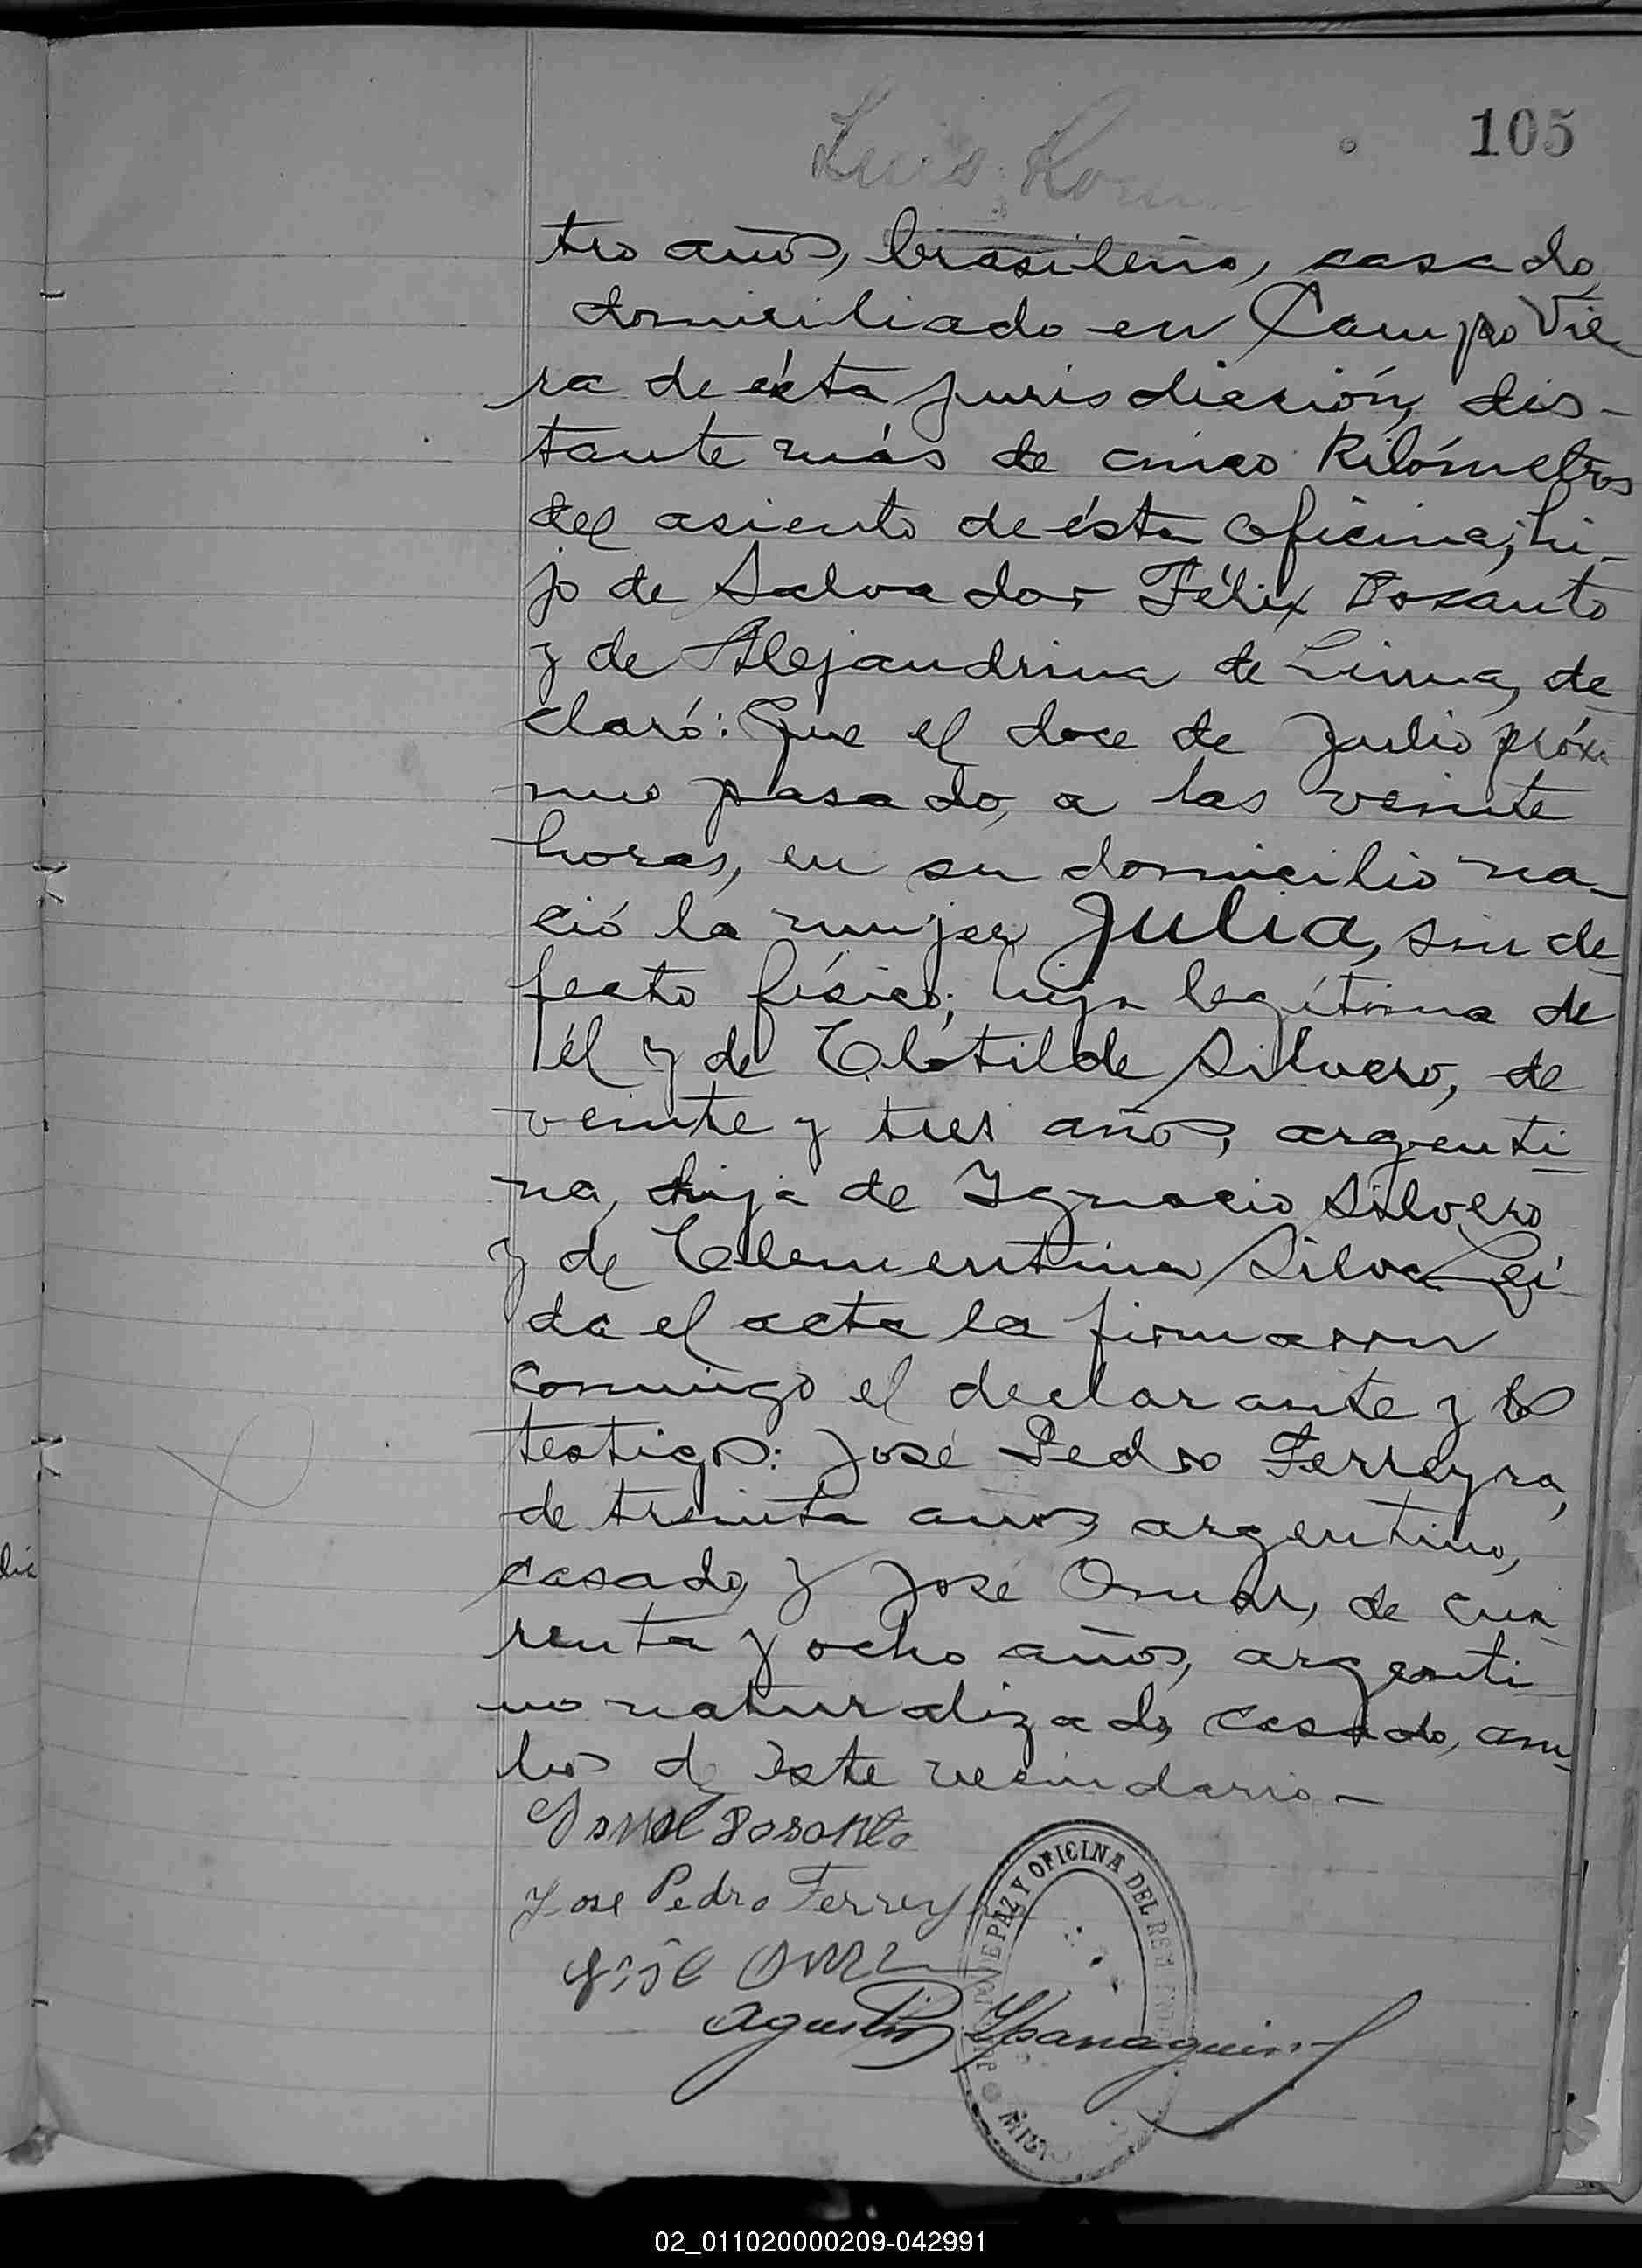 105
Luis
tro años, brasileño, casado,
domiciliado en Campo Vie
ra de ésta jurisdicción, dis-
tante más de cinco kilómetros
del asiento de ésta oficina; hi-
jo de Salvador Félix Dosanto
y de Alejandrina de Lima, de
claró: Que el doce de Julio próxi
mo pasado, a las veinte
horas, en su domicilio na-
ció la mujer Julia, sin de
fecto físico; hija legítima de
él y de Clotilde Silvero, de
veinte y tres años, argenti
na, hija de Ignacio Silvero
y de Clementina Silva Leí
da el acta la firmaron
conmigo el declarante y los
testigos: José Pedro Ferreyra,
de treinta años, argentino,
casado, y José Omar, de cua
renta y ocho años, argenti
no naturalizado, casado, am
bos de este vecindario -
Dosanto
Jose Pedro Ferrey
José Omar
Agustin
DE PAZ Y OFICINA DEL
02_011020000209-042991